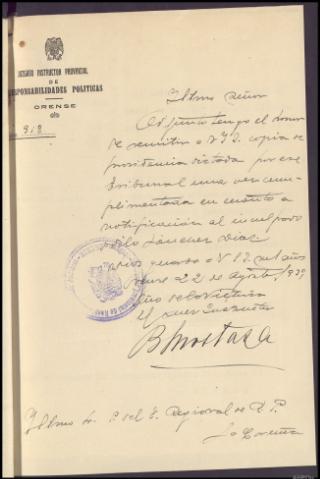 JUZGADO INSTRUCTOR PROVINCIAL
DE
RESPONSABILIDADES POLITICAS
ORENSE
918
Iltmo Señor
Adjunto tengo el honor
de remitir a V.I. copia de
providencia dictada por ese
Tribunal una vez cum-
plimentada en cuanto a
notificación al inculpado
Sánchez Díaz
Dios guarde a V.I. m. años
22 de Agosto 1939
Año de la Victoria
El Juez Instructor
B Mostaza
Iltmo Sr. P. del T. Regional de R. P.
La Coruña